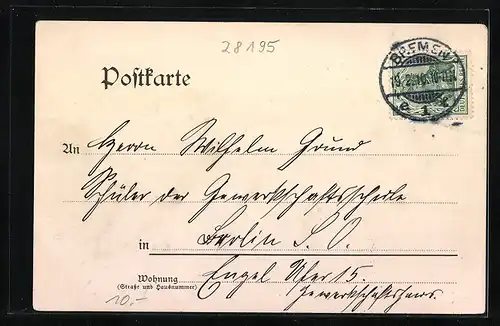 28195
Postkarte
BREMEN
* 1 *
An Herrn Wilhelm Grund
Schüler der Gewerkschaftsschule
in Berlin S. O.
Wohnung Engel Ufer 15.
(Straße und Hausnummer)
Gewerkschaftshaus.
10,-